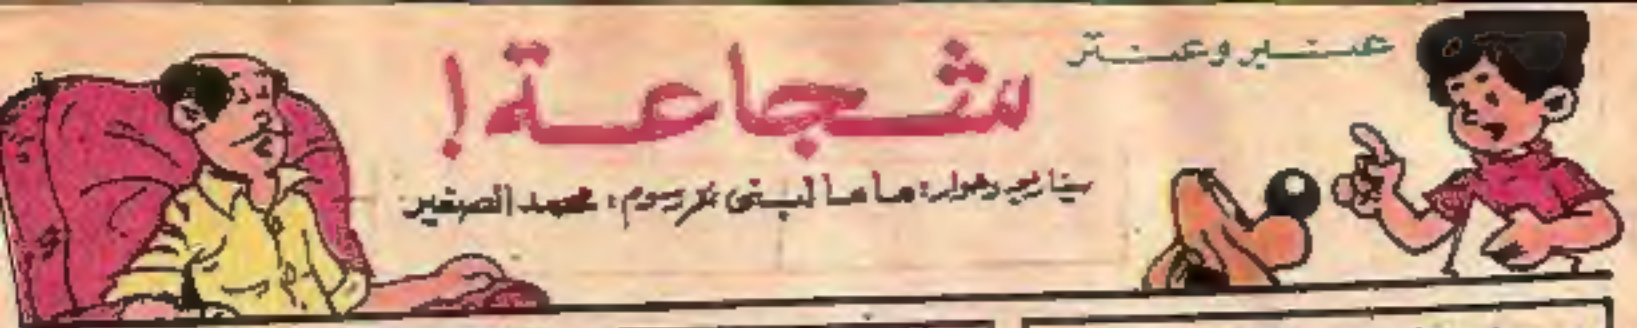 عنبر وعنتر
شجاعة!
سيناريو وحوار: ماما لبنى رسوم: محمد الصغير